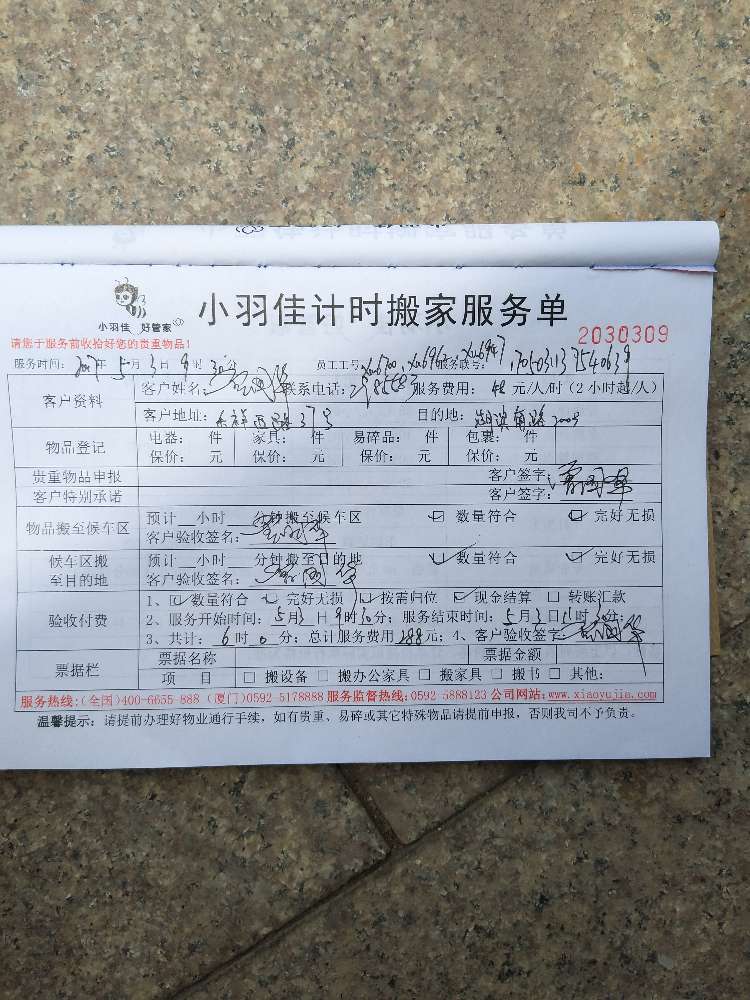 小羽佳 好管家
小羽佳计时搬家服务单
2030309
请您于服务前收拾好您的贵重物品！
服务时间： 2017年 5月 3日 9时 30分 员工工号： 服务联号：
客户资料 客户姓名： 联系电话： 服务费用： 48 元/人/时（2小时起/人）
客户地址： 37号 目的地：
物品登记 电器： 件 家具： 件 易碎品： 件 包裹： 件
保价： 元 保价： 元 保价： 元 保价： 元
贵重物品申报 客户签字：
客户特别承诺 客户签字：
物品搬至候车区 预计__小时___分钟搬至候车区 ☑ 数量符合 ☑ 完好无损
客户验收签名：
候车区搬至目的地 预计__小时___分钟搬至目的地 ☑ 数量符合 ☑ 完好无损
客户验收签名：
验收付费 1、☑ 数量符合 ☑ 完好无损 ☑ 按需归位 ☑ 现金结算 □ 转账汇款
2、服务开始时间：5月3日9时30分；服务结束时间：5月3日11时30分；
3、共计：6时0分；总计服务费用288元；4、客户验收签字：
票据栏 票据名称 票据金额
项 目 □ 搬设备 □ 搬办公家具 □ 搬家具 □ 搬书 □ 其他：
服务热线：(全国)400-6655-888（厦门)0592-5178888 服务监督热线：0592-5888123 公司网站：www.xiaoyujia.com
温馨提示：请提前办理好物业通行手续，如有贵重、易碎或其它特殊物品请提前申报，否则我司不予负责。